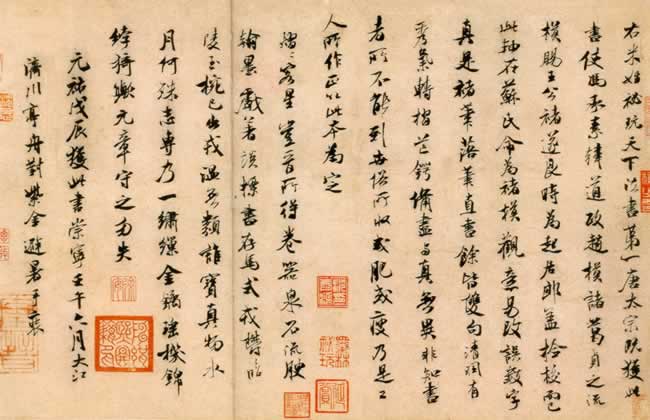 右米姓秘玩天下法書第一唐太宗既獲此
書使馮承素韓道政趙模諸葛貞之流
模賜王公褚遂良時為起居郎蓋檢校而已
此軸在蘇氏命為褚模觀意易改誤數字
真是褚筆落筆直書餘皆雙勾清潤有
秀氣轉摺芒鋩備盡與真無異非知書
者所不能到世俗所收或肥或瘦乃是工
人所作正以此本為定
熠熠客星豈晉所得養器泉石流腴
翰墨戲著談標書存焉式鬱鬱昭
陵玉椀已出戎溫無類誰寶真物水
月何殊志專乃一繡繅金鐍瑤機錦
綍猗歟元章守之勿失
元祐戊辰獲此書崇寧壬午六月大江
濟川亭舟對紫金避暑手裝